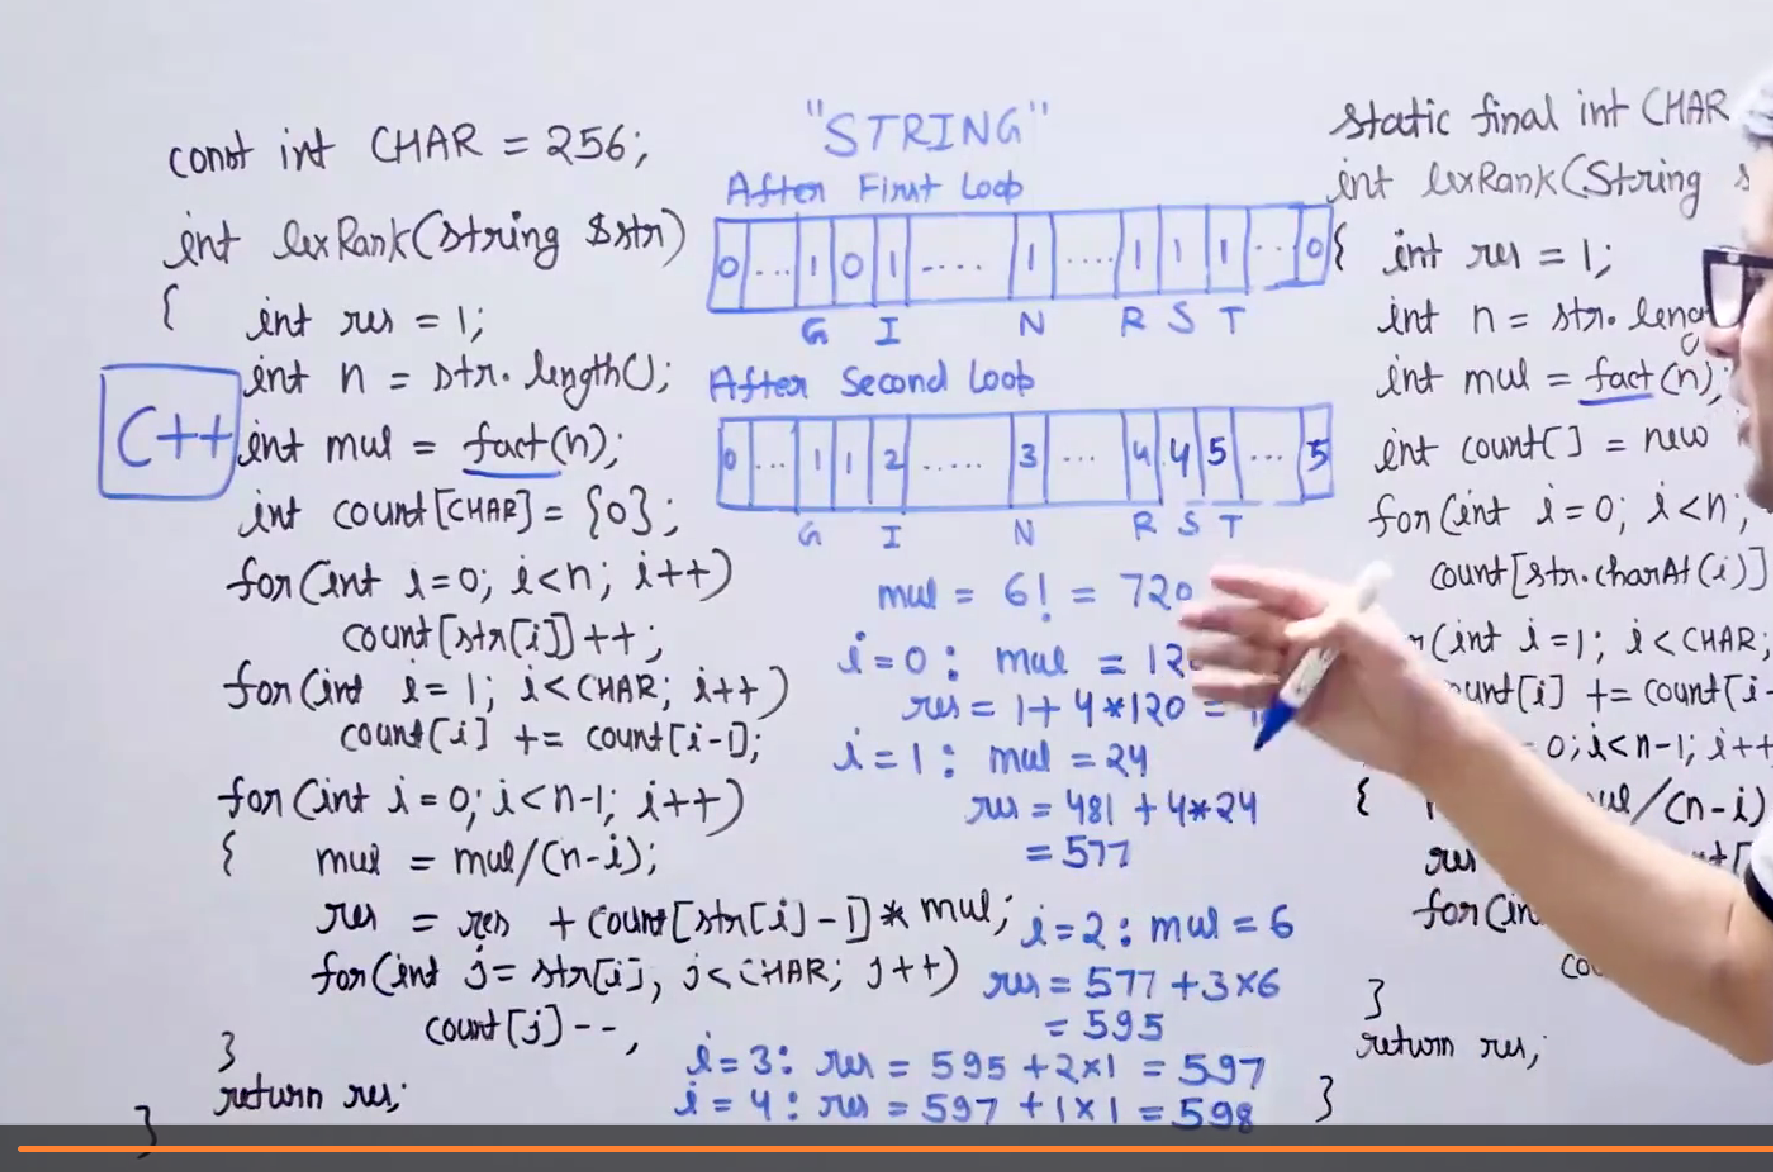 const int CHAR = 256;
int lexRank(string &str)
{ int res = 1;
int n = str.length();
C++
int mul = fact(n);
int count[CHAR] = {0};
for(int i=0; i<n; i++)
count[str[i]]++;
for(int i=1; i<CHAR; i++)
count[i] += count[i-1];
for(int i=0; i<n-1; i++)
{ mul = mul/(n-i);
res = res + count[str[i]-1]* mul;
for(int j= str[i]; j<CHAR; j++)
count[j]--;
}
return res;
}
"STRING"
After First Loop
0 ... 1 0 1 .... 1 .... 1 1 1 ... 0
G I N R S T
After Second Loop
0 ... 1 1 2 ..... 3 ... 4 4 5 ... 5
G I N R S T
mul = 6! = 720
i=0: mul = 12
res = 1+ 4*120 =
i=1: mul = 24
res = 481 + 4*24
= 577
i=2: mul = 6
res = 577 +3×6
= 595
i=3: res = 595 +2×1 = 597
i=4: res = 597 +1×1 = 598
static final int CHAR
int lexRank(String s
{ int res = 1;
int n = str.leng
int mul = fact(n);
int count[] = new
for(int i=0; i<n;
count[str.charAt(i)]
r(int i=1; i<CHAR;
unt[i] += count[i-
0; i<n-1; i++
{ mul/(n-i)
res
for(in
co
}
return res;
}